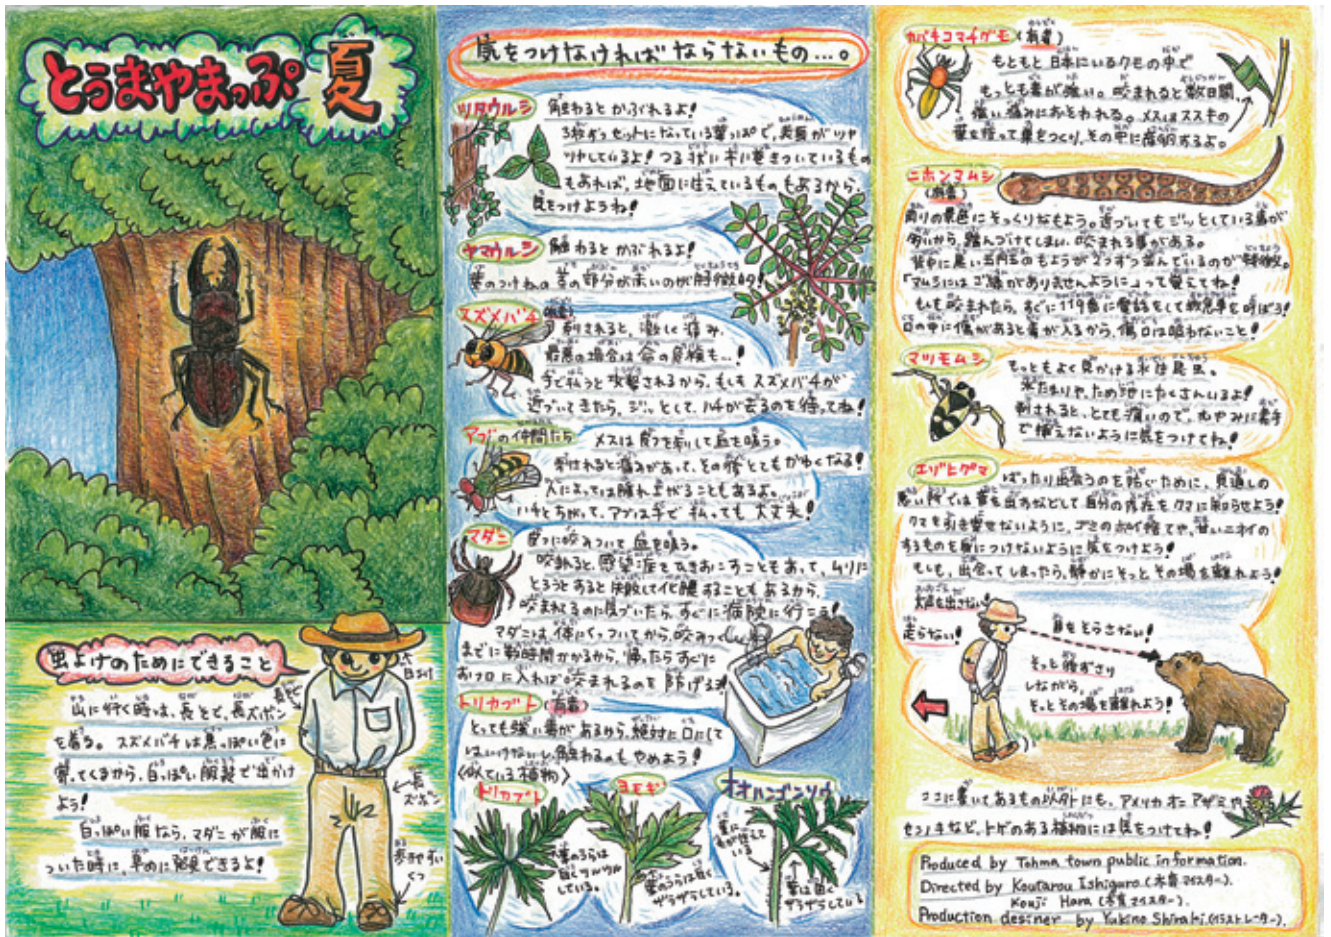 とうまやまっぷ 夏
虫よけのためにできること
山に行く時は、長そで、長ズボン
を着る。スズメバチは黒っぽい色に
寄ってくるから、白っぽい服装で出かけ
よう！
白っぽい服なら、マダニが服に
ついた時に、早めに発見できるよ！
長そで
長ズボン
歩きやすいくつ
気をつけなければならないもの…。
ツタウルシ
触わるとかぶれるよ！
3枚ずつセットになっている葉っぱで、表面がツヤ
ツヤしているよ！つる状に木に巻きついているもの
もあれば、地面に生えているものもあるから、
気をつけようね！
ヤマウルシ
触わるとかぶれるよ！
葉のつけねの茎の部分が赤いのが特徴的！
スズメバチ
刺されると、激しい痛み、
最悪の場合は命の危険も…！
手で払うと攻撃されるから、もしもスズメバチが
近づいてきたら、ジッとして、ハチが去るのを待ってね！
アブの仲間たち
メスは皮フを刺して血を吸う。
刺されると痛みがあって、その後とてもかゆくなる！
人によっては腫れ上がることもあるよ。
ハチとちがって、アブは手で払っても大丈夫！
マダニ
皮フに咬みついて血を吸う。
咬まれると、感染症をひきおこすこともあって、ムリに
とろうとすると失敗して化膿することもあるから、
咬まれてるのに気づいたら、すぐに病院に行こう！
マダニは、体にくっついてから、咬みつく
までに数時間かかるから、帰ったらすぐに
おフロに入れば咬まれるのを防げるよ！
トリカブト（有毒）
とっても強い毒があるから、絶対に口にして
はいけないし、触わるのもやめよう！
〈似ている植物〉
トリカブト
ヨモギ
オオハンゴンソウ
葉のうらは
白くツルツル
している。
葉のうらは白く
ザラザラしている。
ザラザラしている
カバキコマチグモ（有毒）
もともと日本にいるクモの中で
もっとも毒が強い。咬まれると数日間、
強い痛みにおそわれる。メスはススキの
葉を使って巣をつくり、その中に産卵するよ。
ニホンマムシ
（有毒）
周りの景色にそっくりなもよう。近づいてもジッとしている事が
多いから、踏んづけてしまい、咬まれる事がある。
背中に黒い五円玉のもようが2つずつ並んでいるのが特徴。
「マムシにはご縁がありませんように」って覚えてね！
もしも咬まれたら、すぐに119番に電話をして救急車を呼ぼう！
口の中に傷があると毒が入るから、傷口は吸わないこと！
マツモムシ
もっともよく見かける水生昆虫。
水たまりや、ため池にたくさんいるよ！
刺されると、とても痛いので、むやみに素手
で捕えないように気をつけてね！
エゾヒグマ
ばったり出会うのを防ぐために、見通しの
悪い所では音を出すなどして自分の存在をクマに知らせよう！
クマを引き寄せないように、ゴミのポイ捨てや、甘いニオイの
するものを身につけないように気をつけよう！
もしも、出会ってしまったら、静かにそっとその場を離れよう！
大声を出さない！
走らない！
目をそらさない！
そっと後ずさり
しながら、
そっとその場を離れよう！
ここに書いてあるもの以外にも、アメリカオニアザミや
センノキなど、トゲのある植物には気をつけてね！
Produced by Tohma town public information.
Directed by Koutarou Ishiguro（木育マイスター）.
Kouji Hara（木育マイスター）.
Production desiner by Yukino Shiraki.（イラストレーター）.